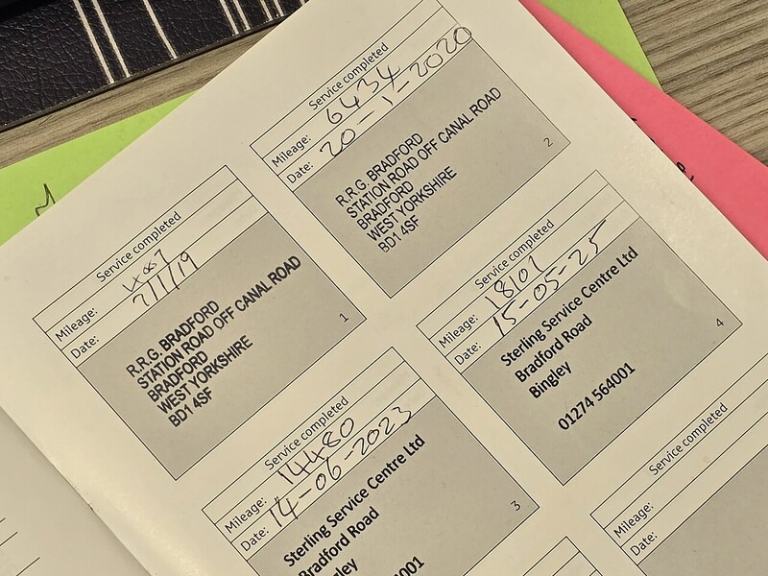 Service completed
Mileage: 4007
Date: 7/1/19
R.R.G. BRADFORD
STATION ROAD OFF CANAL ROAD
BRADFORD
WEST YORKSHIRE
BD1 4SF
1
Service completed
Mileage: 6434
Date: 20-1-2020
R.R.G. BRADFORD
STATION ROAD OFF CANAL ROAD
BRADFORD
WEST YORKSHIRE
BD1 4SF
2
Service completed
Mileage: 14480
Date: 14-06-2023
Sterling Service Centre Ltd
Bradford Road
Bingley
001
3
Service completed
Mileage: 18101
Date: 15-05-25
Sterling Service Centre Ltd
Bradford Road
Bingley
01274 564001
4
Service completed
Mileage:
Date: